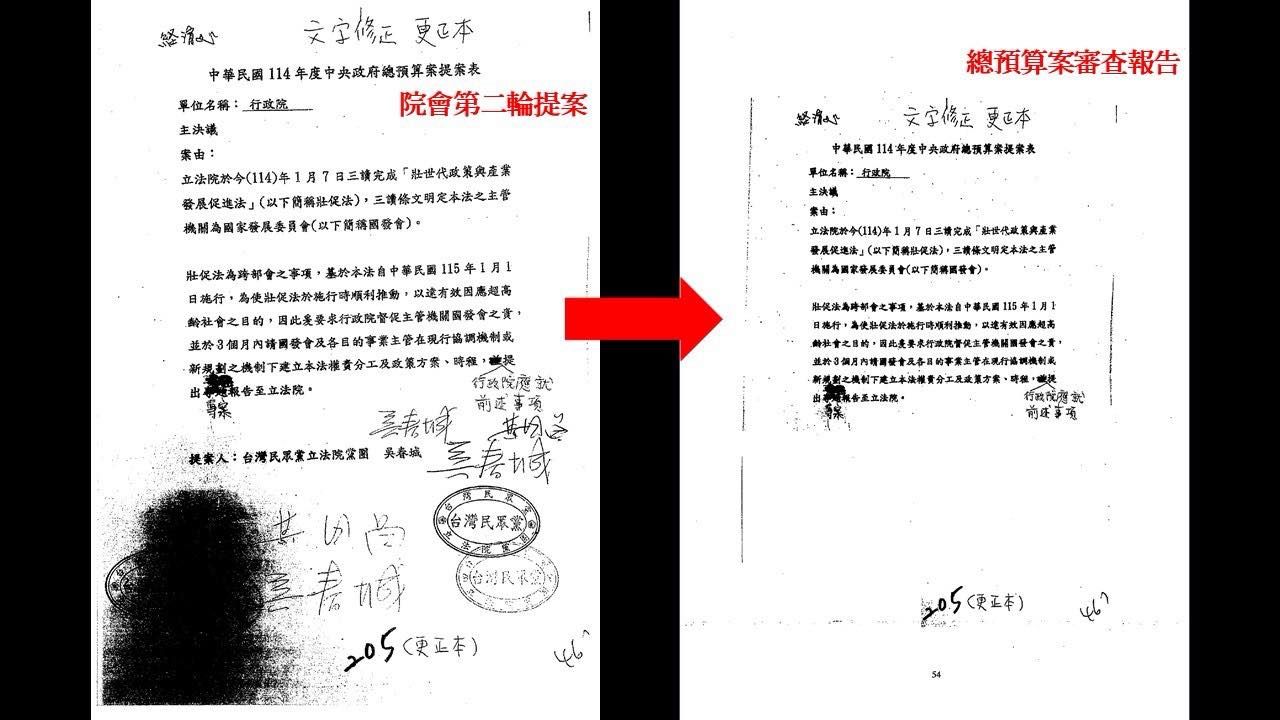 經濟
文字修正 更正本
中華民國 114 年度中央政府總預算案提案表
單位名稱：行政院
院會第二輪提案
主決議
案由：
立法院於今(114)年 1 月 7 日三讀完成「壯世代政策與產業
發展促進法」(以下簡稱壯促法)，三讀條文明定本法之主管
機關為國家發展委員會(以下簡稱國發會)。
壯促法為跨部會之事項，基於本法自中華民國 115 年 1 月 1
日施行，為使壯促法於施行時順利推動，以達有效因應超高
齡社會之目的，因此爰要求行政院督促主管機關國發會之責，
並於 3 個月內請國發會及各目的事業主管在現行協調機制或
新規劃之機制下建立本法權責分工及政策方案、時程，提
行政院應就
前述事項
出報告至立法院。
專案
吳春城
吳春城
提案人：台灣民眾黨立法院黨團 吳春城
台灣民眾黨
立法院黨團
台灣民眾黨
台灣民眾黨
吳春城
205(更正本)
總預算案審查報告
經濟
文字修正 更正本
中華民國 114 年度中央政府總預算案提案表
單位名稱：行政院
主決議
案由：
立法院於今(114)年 1 月 7 日三讀完成「壯世代政策與產業
發展促進法」(以下簡稱壯促法)，三讀條文明定本法之主管
機關為國家發展委員會(以下簡稱國發會)。
壯促法為跨部會之事項，基於本法自中華民國 115 年 1 月 1
日施行，為使壯促法於施行時順利推動，以達有效因應超高
齡社會之目的，因此爰要求行政院督促主管機關國發會之責，
並於 3 個月內請國發會及各目的事業主管在現行協調機制或
新規劃之機制下建立本法權責分工及政策方案、時程，提
行政院應就
前述事項
出報告至立法院。
專案
205(更正本)
54